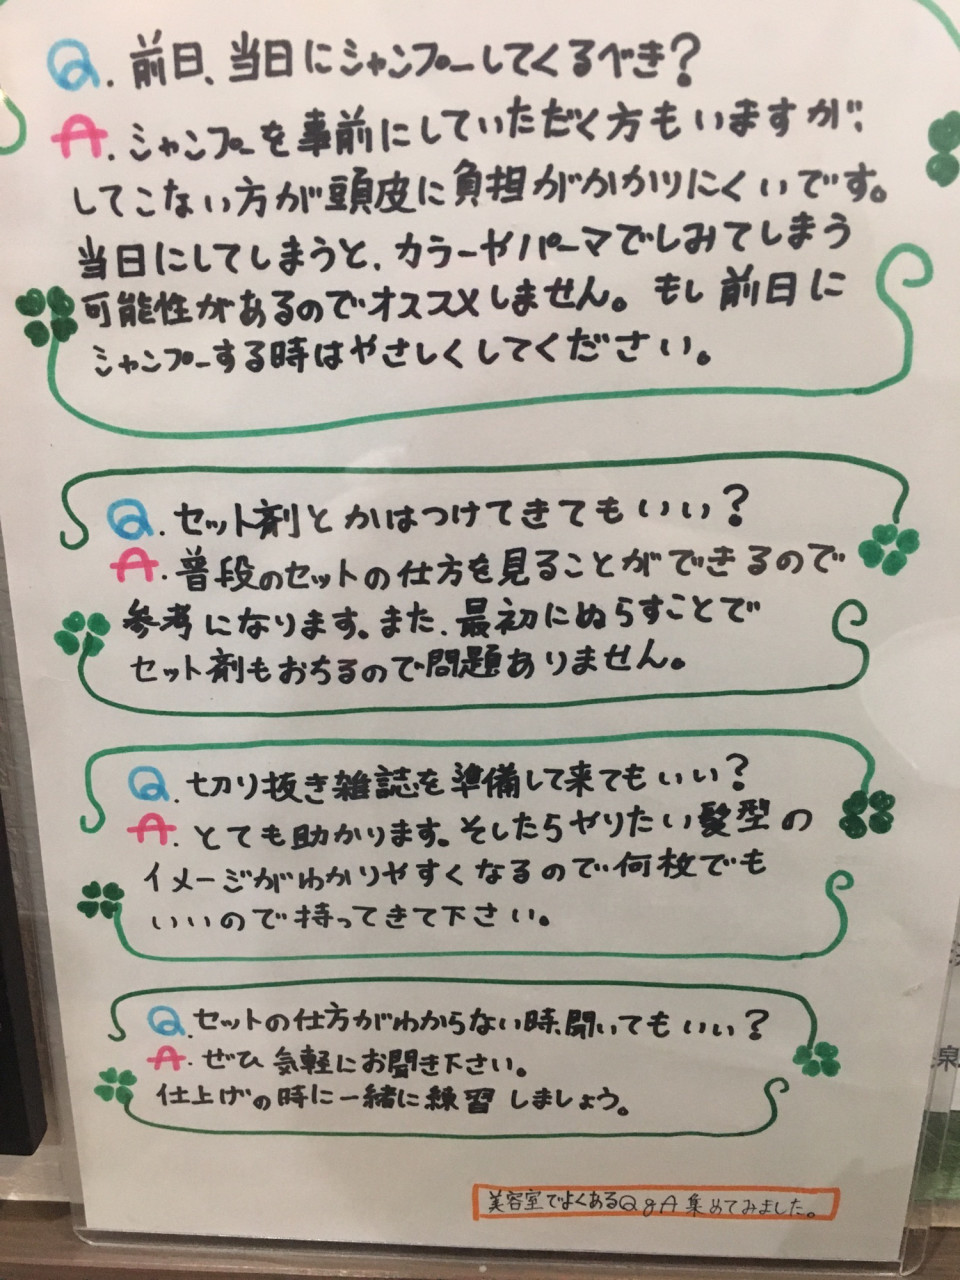 Q. 前日、当日にシャンプーしてくるべき?
A. シャンプーを事前にしていただく方もいますが、
してこない方が頭皮に負担がかかりにくいです。
当日にしてしまうと、カラーやパーマでしみてしまう
可能性があるのでオススメしません。もし前日に
シャンプーする時はやさしくしてください。
Q. セット剤とかはつけてきてもいい?
A. 普段のセットの仕方を見ることができるので
参考になります。また、最初にぬらすことで
セット剤もおちるので問題ありません。
Q. 切り抜き雑誌を準備して来てもいい?
A. とても助かります。そしたらやりたい髪型の
イメージがわかりやすくなるので何枚でも
いいので持ってきて下さい。
Q. セットの仕方がわからない時、聞いてもいい?
A. ぜひ気軽にお聞き下さい。
仕上げの時に一緒に練習しましょう。
美容室でよくあるQ&A集めてみました。
泉